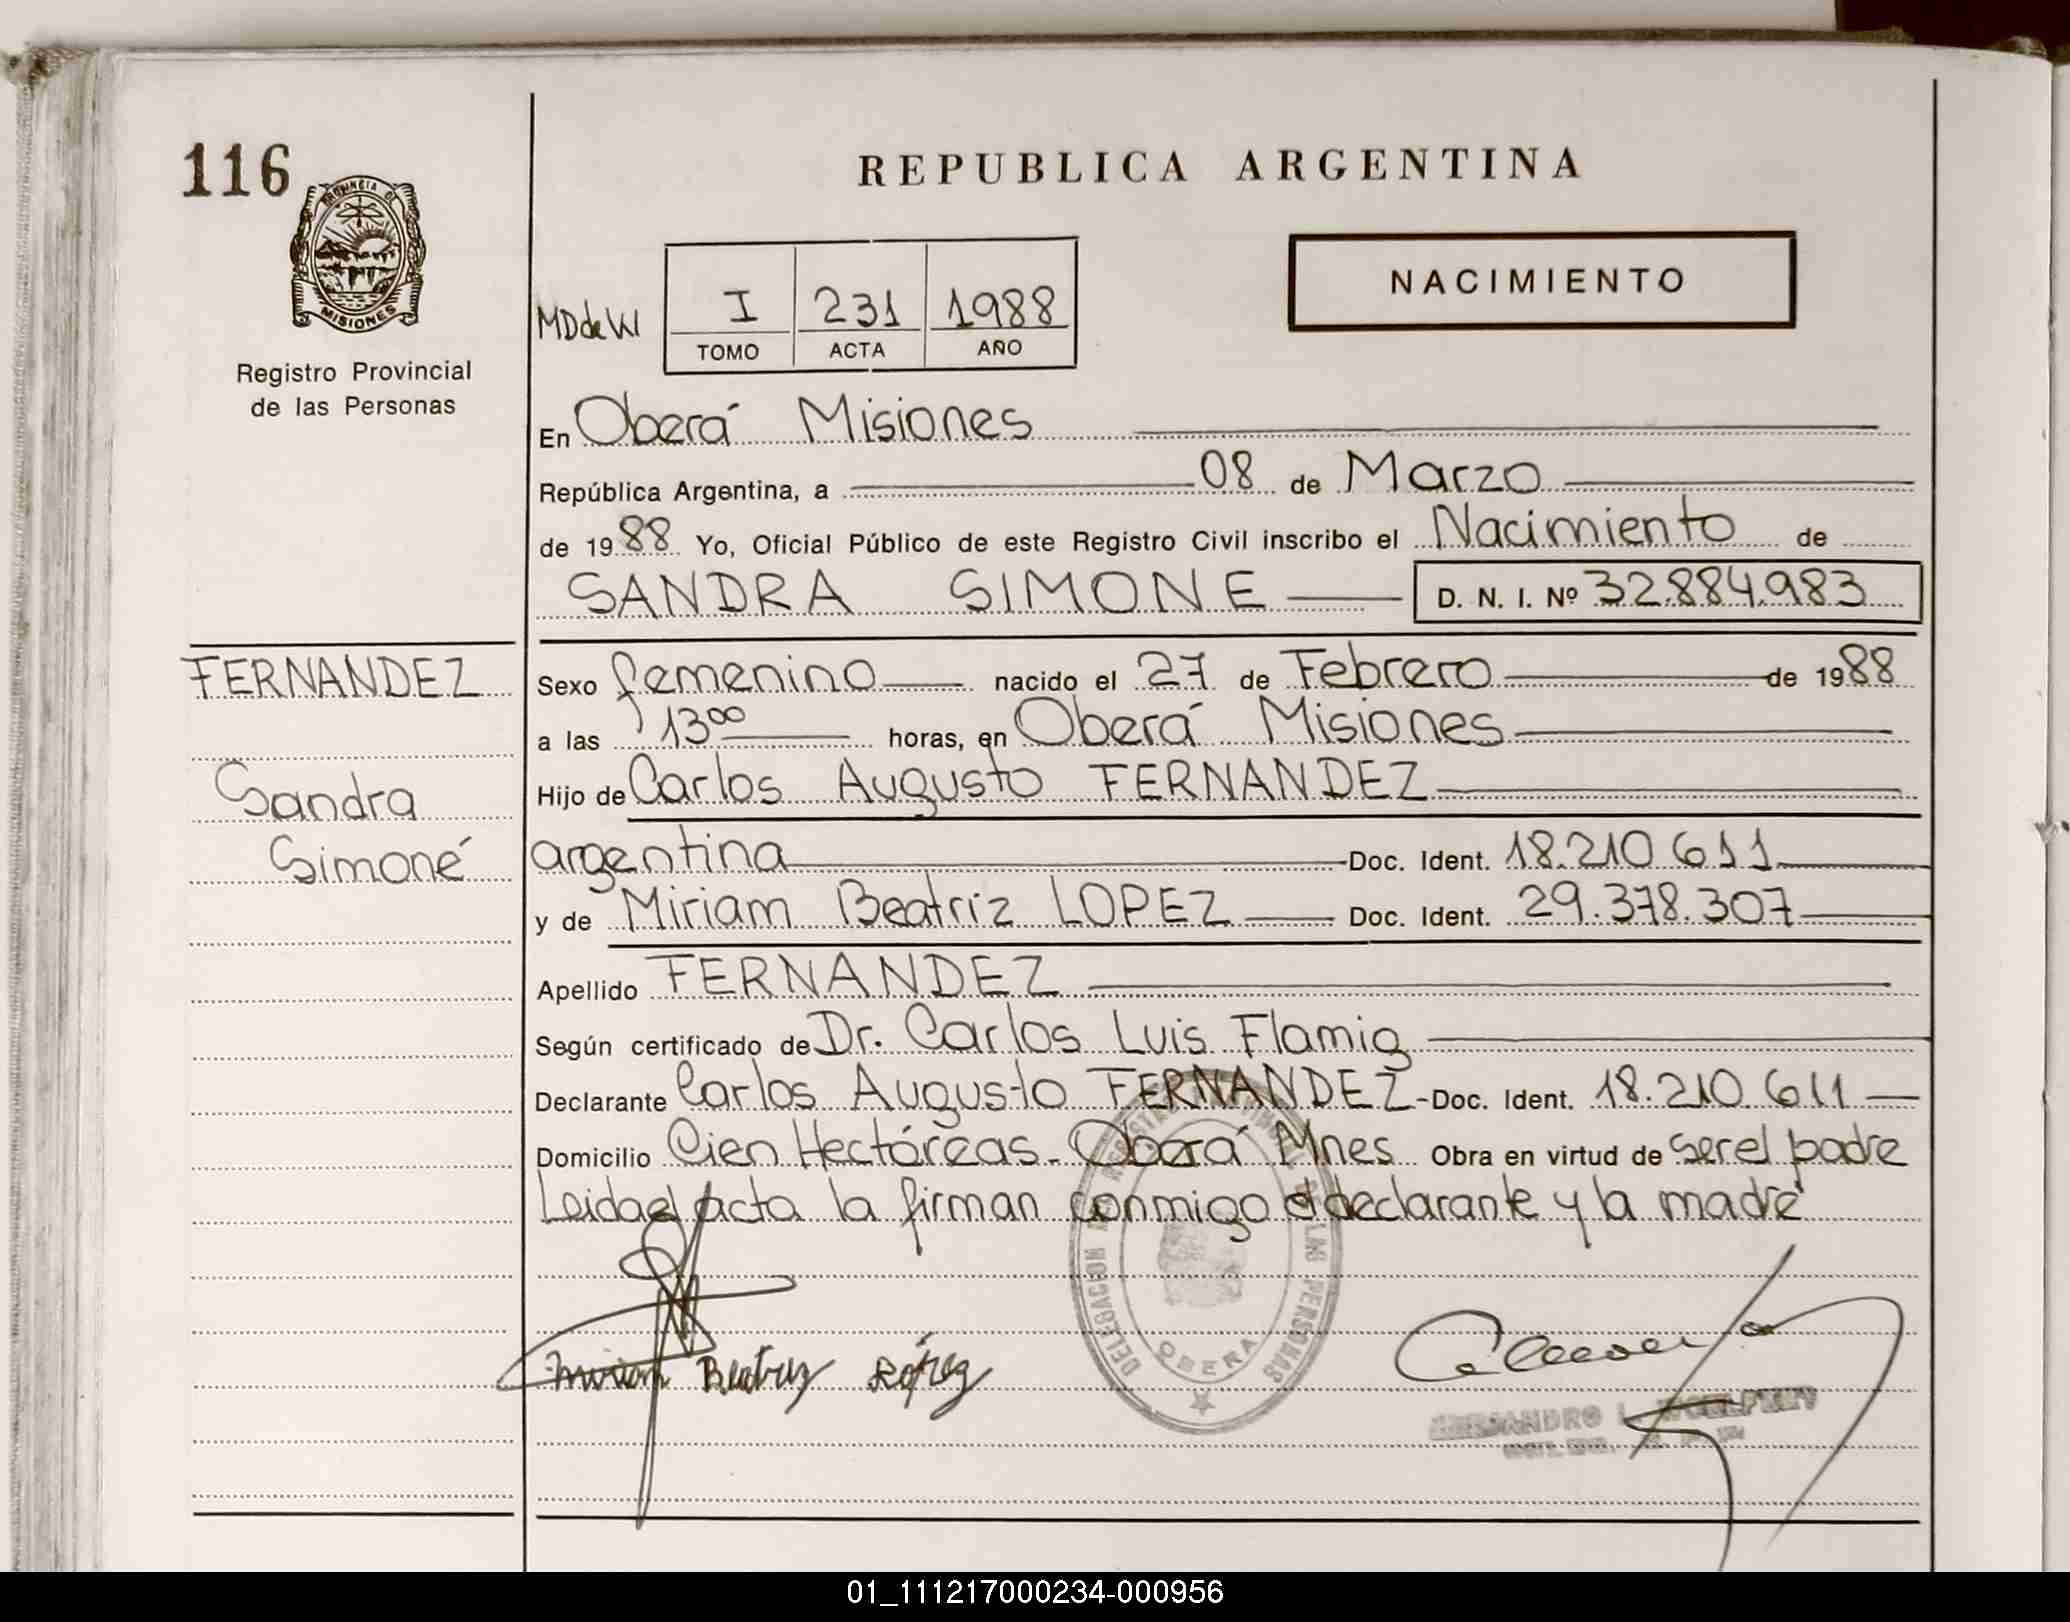 116
REPUBLICA ARGENTINA
PROVINCIA DE
MISIONES
NACIMIENTO
MDdeW
I 231 1988
TOMO ACTA AÑO
Registro Provincial
de las Personas
En Oberá Misiones
República Argentina, a 08 de Marzo
de 1988 Yo, Oficial Público de este Registro Civil inscribo el Nacimiento de
SANDRA SIMONE D. N. I. Nº 32.884.983
FERNANDEZ
Sandra
Simoné
Sexo femenino nacido el 27 de Febrero de 1988
a las 13⁰⁰ horas, en Oberá Misiones
Hijo de Carlos Augusto FERNANDEZ
argentina Doc. Ident. 18.210.611
y de Miriam Beatriz LOPEZ Doc. Ident. 29.378.307
Apellido FERNANDEZ
Según certificado de Dr. Carlos Luis Flamig
Declarante Carlos Augusto FERNANDEZ - Doc. Ident. 18.210.611
Domicilio Cien Hectáreas - Oberá Mnes Obra en virtud de ser el padre
Leida el acta la firman conmigo el declarante y la madre
Miriam Beatriz López
DELEGACION DEL REGISTRO PROVINCIAL DE LAS PERSONAS
OBERA
01_111217000234-000956